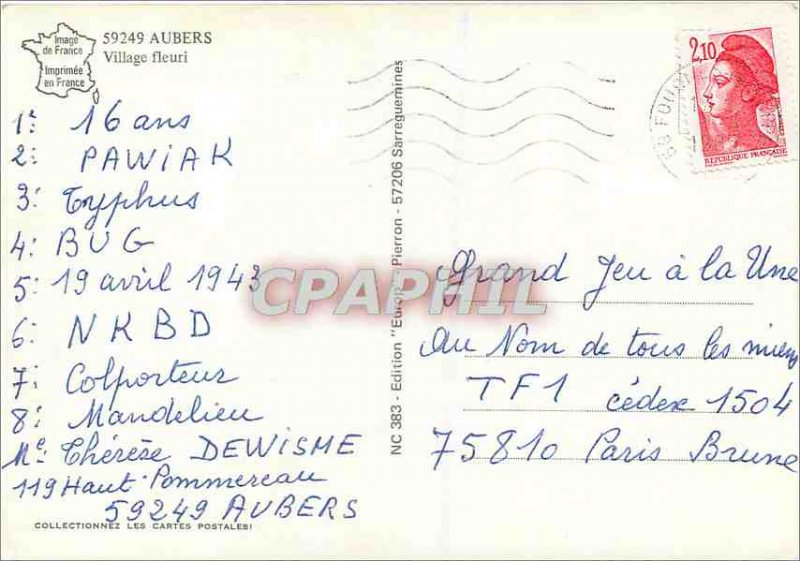 Image
de France
Imprimée
en France
59249 AUBERS
Village fleuri
1: 16 ans
2: PAWIAK
3: Typhus
4: BUG
5: 19 avril 1943
6: NKBD
7: Colporteur
8: Mandelieu
Me: Thérèse DEWISME
119 Haut-Pommereau
59249 AUBERS
COLLECTIONNEZ LES CARTES POSTALES!
NC 383 - Edition "Europ" - Pierron - 57206 Sarreguemines
CPAPHIL
2,10
REPUBLIQUE FRANÇAISE
59 FOU
Grand Jeu à la Une
Au Nom de tous les miens
TF1 cédex 1504
75810 Paris Brune